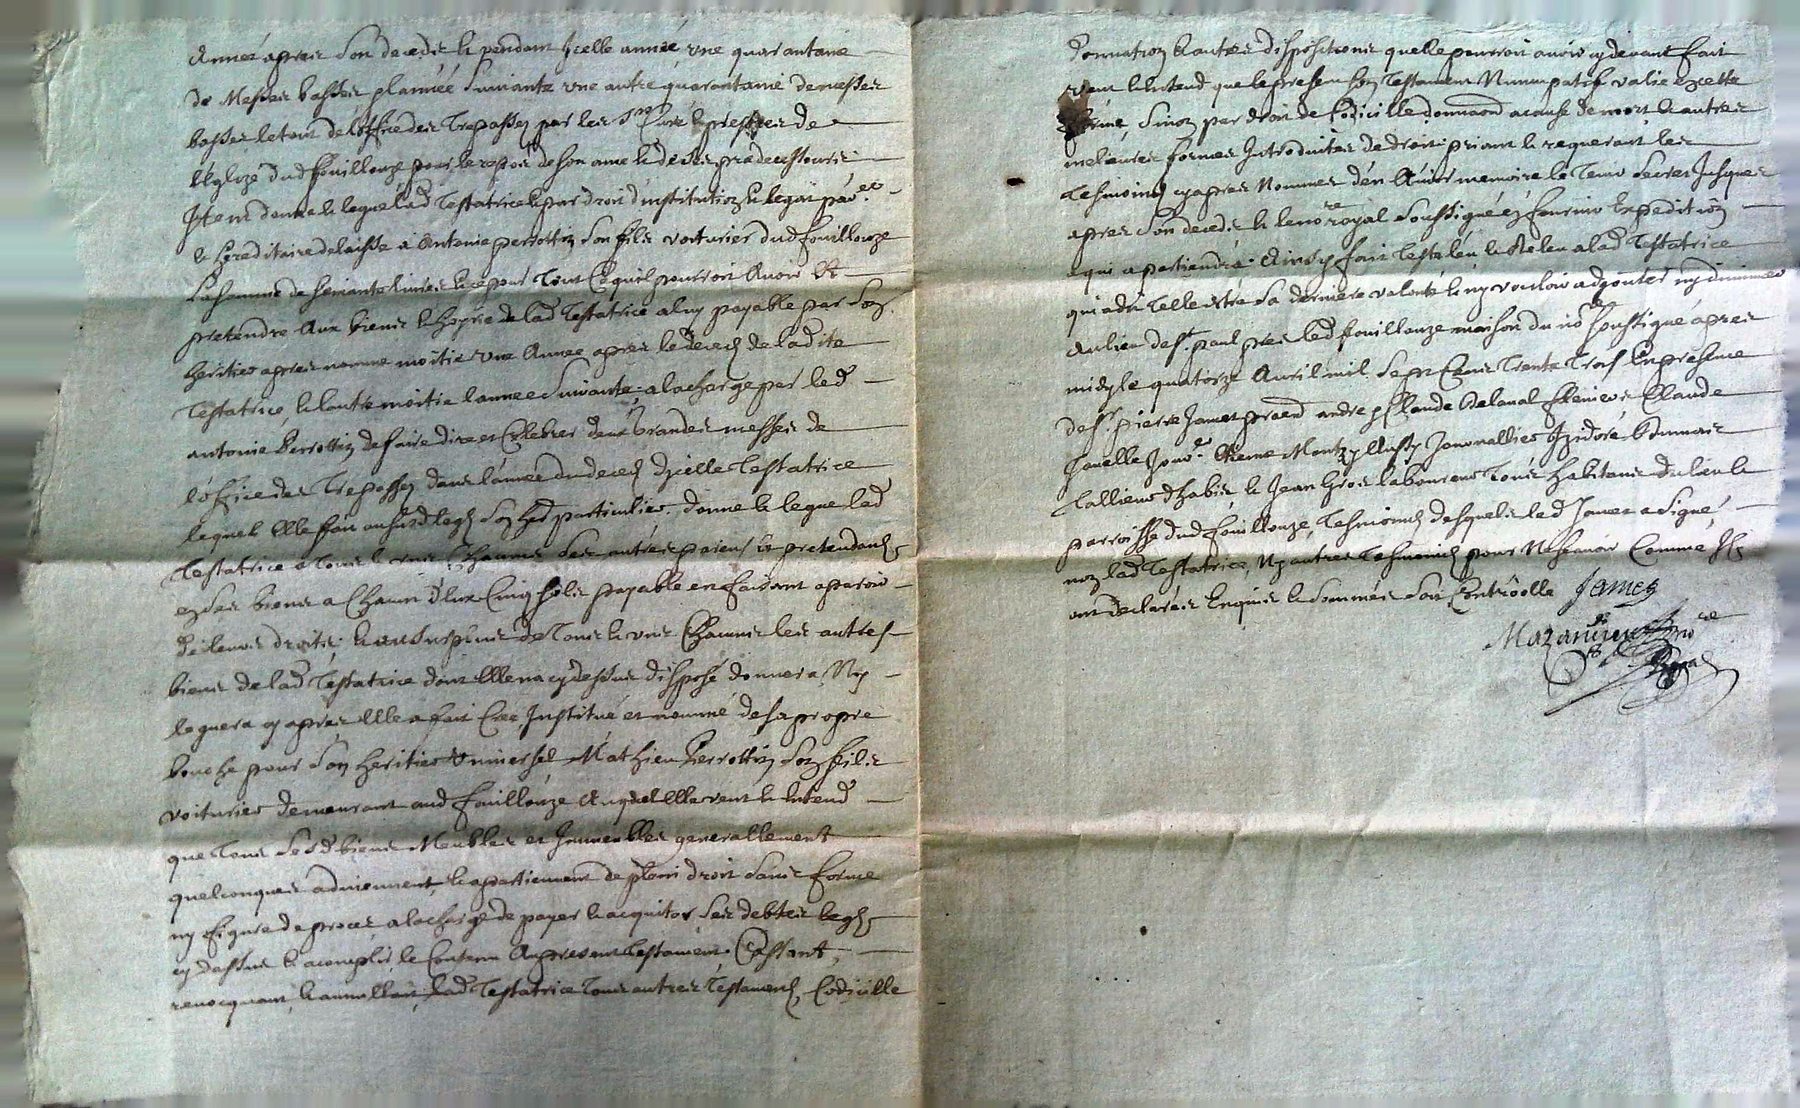 Année apres son deceds & pendant Jcelle année, une quarantaine
de Messes basses & lannéé Suivante une autre quarantaine de messes
basses le tout de l'office des Trepassez par les Srs Curé & prestres de
l'Eglize dud fouillouze pour le repos de son ame & de ses predecesseurs
Item donne & legue lad Testatrice & par droit d'institution & legat
& hereditaire delaisse à Antoine perrottin son fils voiturier dud fouillouze
La somme de livres & ce pour Tout Ce quil pourroit Avoir Et
pretendre Aux biens & hoyrie de lad Testatrice a luy payable par son
heritier apres nommé moitié une Année apres le deceds de ladite
Testatrice, & lautre moitié lannee Suivante, a la charge par led
antoine Perrottin de faire dire et Celebrer deux Grandes messes de
l'office des Trepassez dans lannee du deceds d'jcelle Testatrice
lequel Elle fait aussy son hed particulier. donne & legue lad
Testatrice a Tous & uns Chacuns ses autres parens & pretendants
en ses biens a Chacun d'eux Cinq sols payable en faisant aparoir
de leurs droits, & au surplus de Tous & uns Chacuns les autres
biens de lad Testatrice dont Elle na cy dessus disposé donnera Ny
leguera cy apres Elle a fait Créé Institué et nommé de sa propre
bouche pour son heritier Universel Mathieu Perrottin son fils
voiturier demeurant aud fouillouze Auquel Elle veut & Entend
que Tous sesd biens Meubles et Immeubles generallement
quelconques adviennent & apartiennent de plein droit sans forme
ny figure de proces a la charge de payer & acquiter ses debtes legts
cy dessus & accomplir le Contenu Au present Testament Cassant,
revocquant & annullant lad Testatrice Tous autres Testaments, Codicille
donnation & autres dispositions quelle pourroit avoir cy devant fait
veut & Entend que le present son Testament Nuncupatif valie
forme, sinon par droit de Codicille donnaon a cause de mort & autres
melieures formes Introduites de droit priant & requerant les
Tesmoins cy apres Nommes den Avoir memoire le Tenir secret Jusques
apres son deceds & le nore royal soussigné en fournir Expedition
a qui apartiendra. Ainsy fait Testé leu & Releu a lad Testatrice
qui a dit Telle estre sa derniere volonté & ny vouloir adjouter ny diminuer
Au lieu de St paul pres led fouillouze maison du nore soussigné apres
midy le quatorze Avril mil sept Cents Trente Trois En presence
de Sr pierre Jamet andre & Claude Delaval Claude
Jour. Journallier Izidore
d'habits & Jean Gros laboureur Tous habitans du lieu &
parroisse dud fouillouze, Tesmoins desquels led Jamet a signé
non lad Testatrice, Ny autres Tesmoins pour Ne scavoir Comme Ils
ont declaré Enquis & sommés soit Contrôlle Jamet